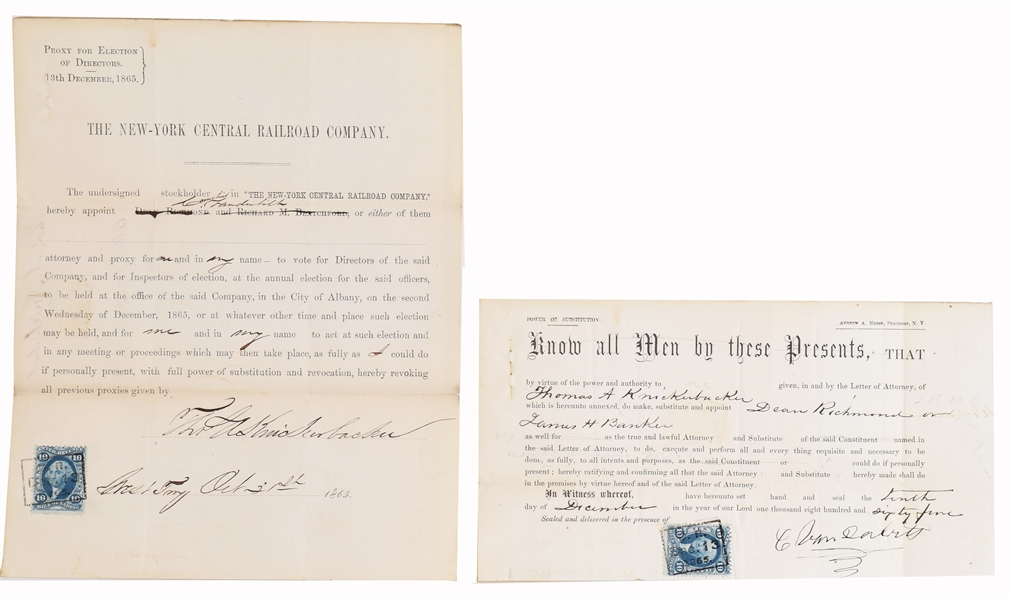 PROXY FOR ELECTION
OF DIRECTORS.
13th DECEMBER, 1865.
THE NEW-YORK CENTRAL RAILROAD COMPANY.
The undersigned stockholder in "THE NEW-YORK CENTRAL RAILROAD COMPANY,"
C. Vanderbilt
hereby appoint DEAN RICHMOND and RICHARD M. BLATCHFORD, or either of them
attorney and proxy for me and in my name to vote for Directors of the said
Company, and for Inspectors of election, at the annual election for the said officers,
to be held at the office of the said Company, in the City of Albany, on the second
Wednesday of December, 1865, or at whatever other time and place such election
may be held, and for me and in my name to act at such election and
in any meeting or proceedings which may then take place, as fully as I could do
if personally present, with full power of substitution and revocation, hereby revoking
all previous proxies given by
Thos A Knickerbacker
Troy Oct 31st 1865.
10 10
POWER OF SUBSTITUTION.
ANDREW A. STATIONER, N. Y.
Know all Men by these Presents, THAT
by virtue of the power and authority to given, in and by the Letter of Attorney, of
Thomas A Knickerbacker
which is hereunto annexed, do make, substitute and appoint Dean Richmond or
James H Banker
as well for as the true and lawful Attorney and Substitute of the said Constituent named in
the said Letter of Attorney, to do, execute and perform all and every thing requisite and necessary to be
done, as fully, to all intents and purposes, as the said Constituent or could do if personally
present; hereby ratifying and confirming all that the said Attorney or Substitute hereby made shall do
in the premises by virtue hereof and of the said Letter of Attorney.
In Witness whereof, have hereunto set hand and seal the tenth
day of December in the year of our Lord one thousand eight hundred and sixty five
Sealed and delivered in the presence of
C Vanderbilt
13
1865
10 10